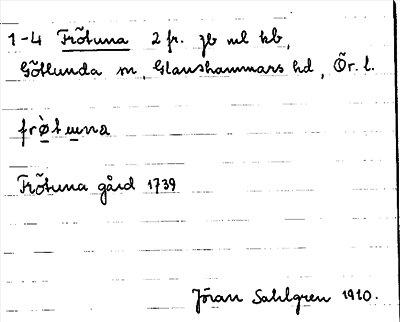 1-4 Frõtuna 2 fr. jb ml kb,
Gõtlunda sn, Glanshammars hd, Ör. l.
frø̀tuna
Frõtuna gård 1739
Jöran Sahlgren 1910.